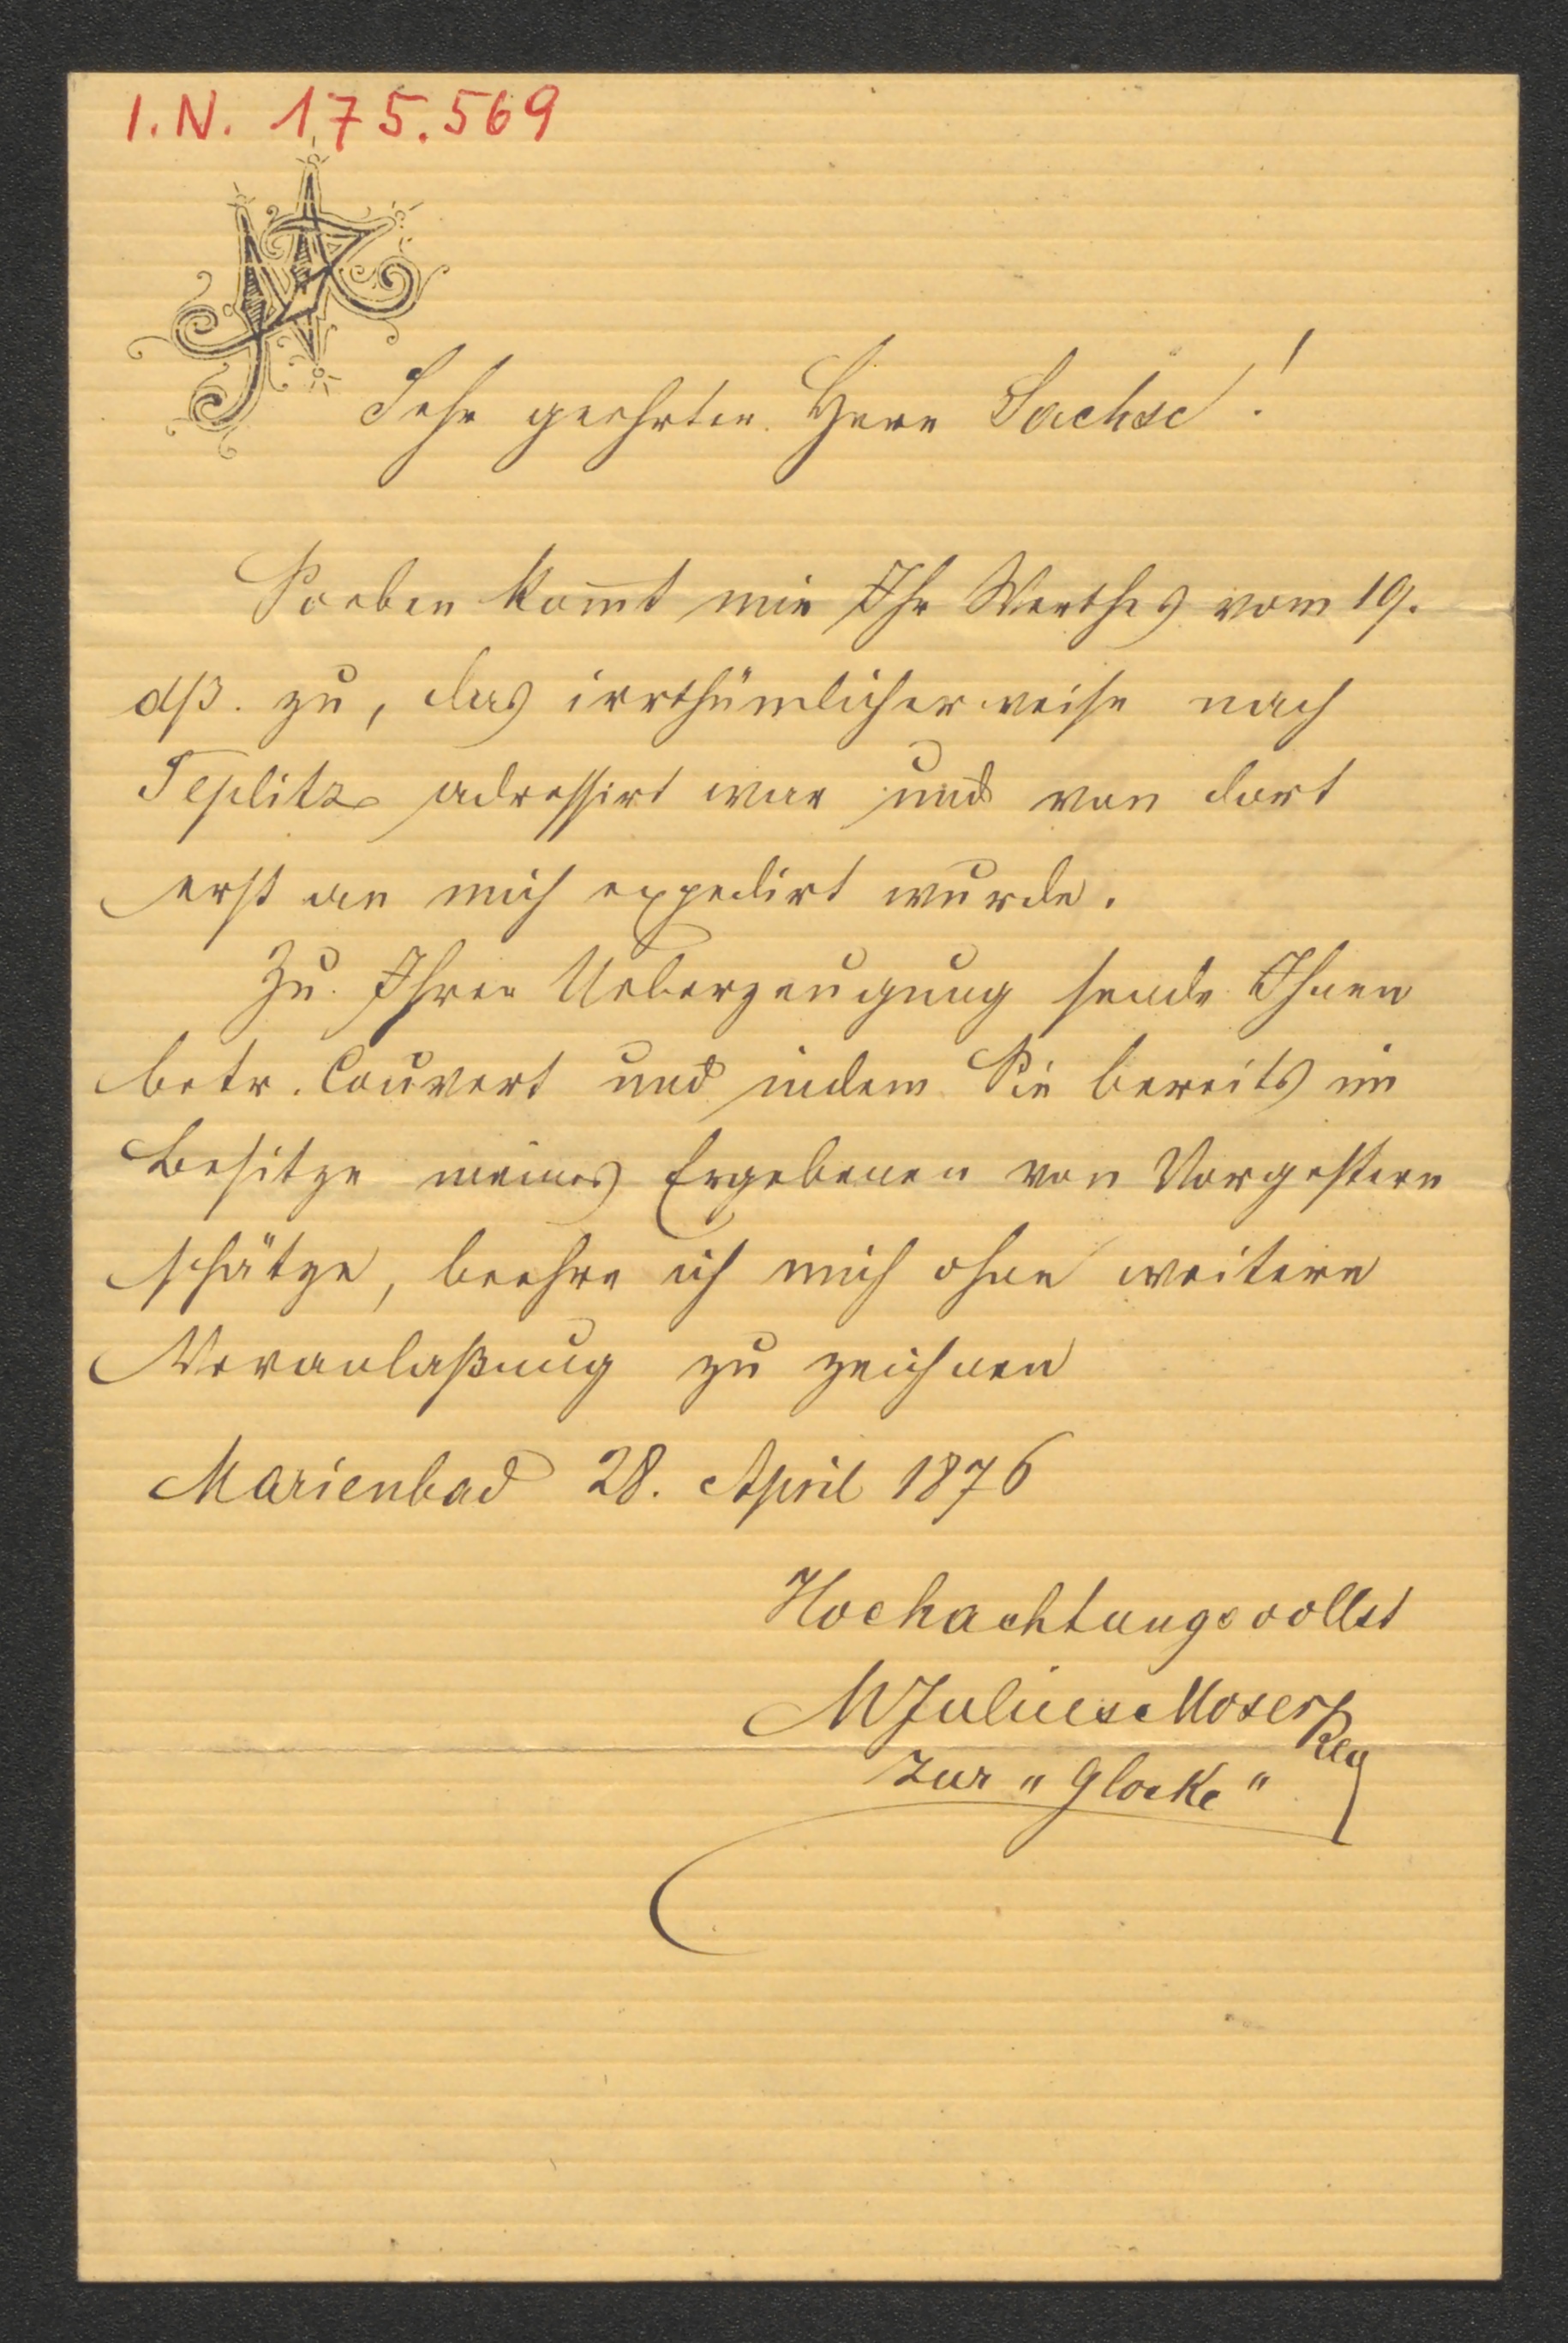 I.N. 175.569
Sehr geehrter Herr Sachse!
Soeben kom̅t mir Ihr Werthes vom 19.
dß. zu, das irrthümlicherweise nach
Teplitz adressirt war und von dort
erst an mich expedirt wurde.
Zu Ihrer Ueberzeugung sende Ihnen
betr. Couvert und indem Sie bereits im
Besitze meines Ergebenen von Vorgestern
schätze, beehre ich mich ohne weitere
Veranlaßung zu zeichnen
Marienbad 28. April 1876
Hochachtungsvollst
MJulius Moser
zur "Glocke"